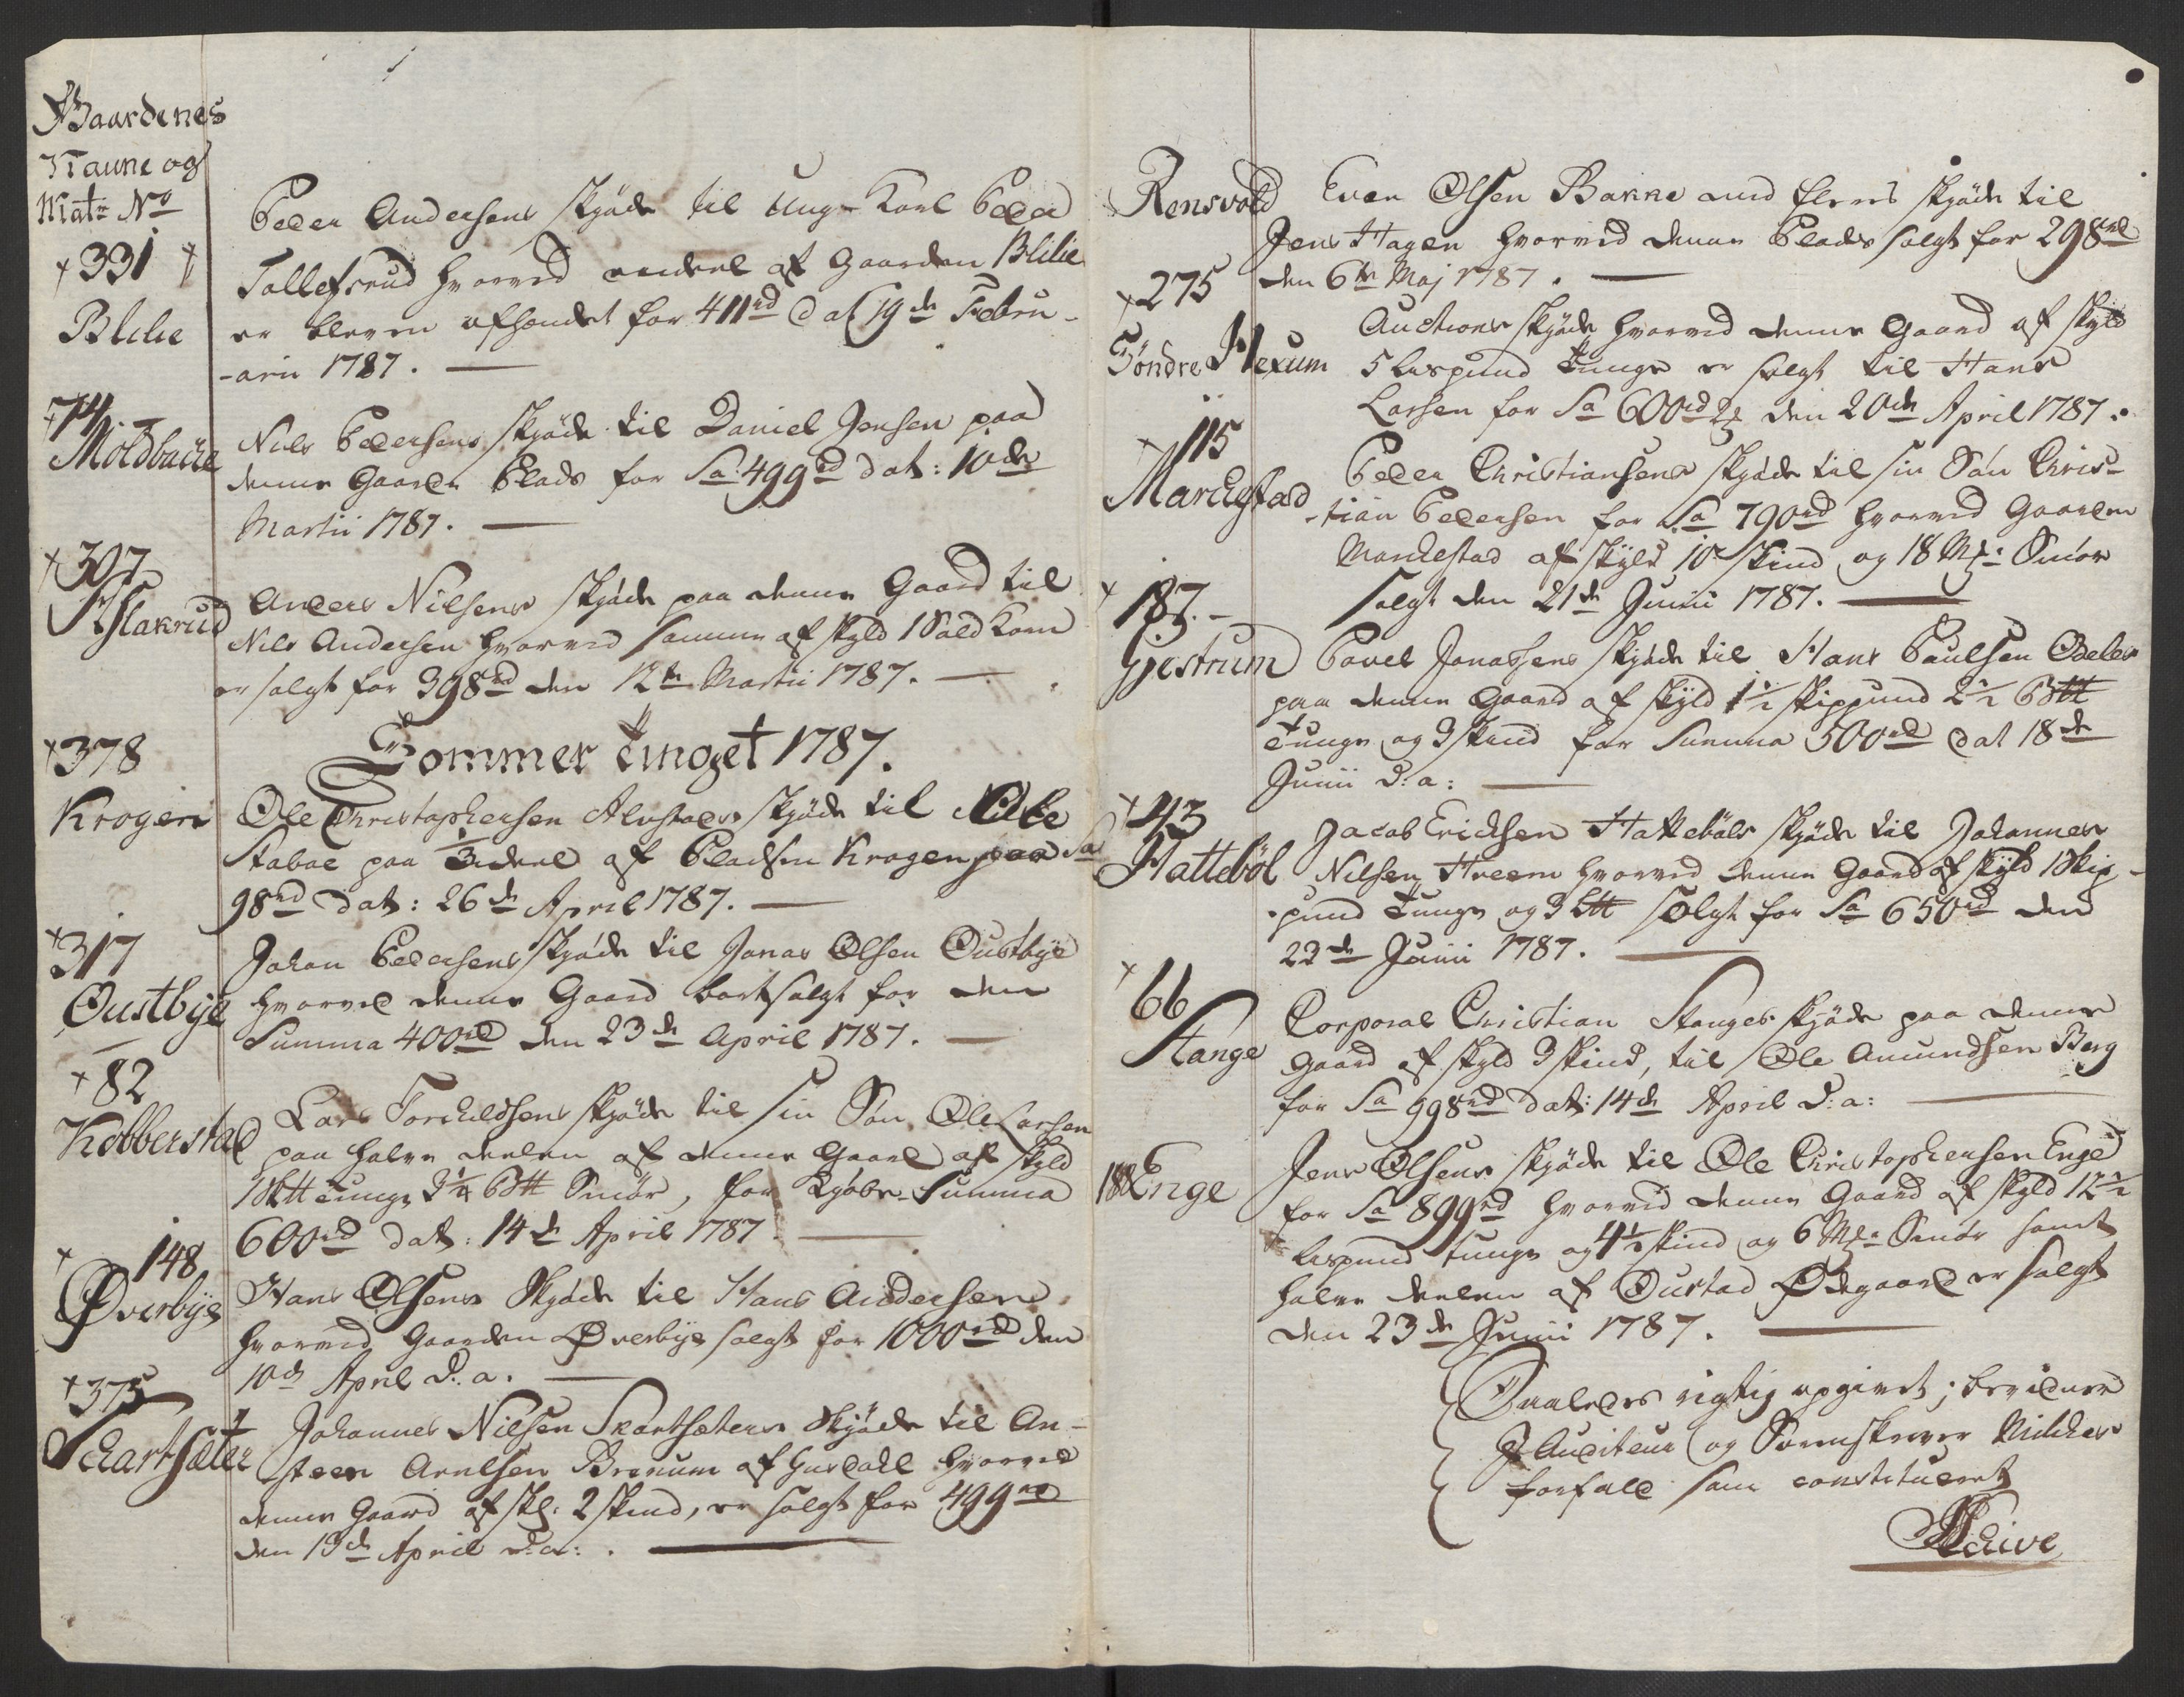 Gaardenes
Naune og
Matr No
331
Blilie
Peder Andersens Skjøde til Unge Karl Peder
Tollefsrud hvorved endeel af Gaarden Blilie
er bleven afhændet for 411 rd Dat 19de Febru-
-arii 1787.
74
Moldbacke
Niels Pedersens Skjøde til Daniel Jensen paa
denne Gaards Plads for Sa 499 rd dat: 10de
Martii 1787.
307
Aslakrud
Anders Nilsens Skjøde paa denne Gaard til
Nils Andersen hvorved samme af skyld 1 Sold Korn
er solgt for 398 rd den 12te Martii 1787.
Sommer tinget 1787.
378
Krogen
Ole Christophersen Alvstads Skjøde til
Stabae paa 1/3 deel af Pladsen Krogen for Sa
98 rd dat: 26de April 1787.
317
Oustbye
Johan Pedersens Skjøde til Jonas Olsen Oustbye
hvorved denne Gaard bortsolgt for den
Summa 400 rd den 23de April 1787.
82
Kobberstad
Lars Torchildsens Skjøde til sin Søn Ole Larsen
paa halve deelen af denne Gaard af skyld
1 Sktt tunge 3 1/4 Bstt Smør, for Kjøbe-Summa
600 rd dat: 14de April 1787
148
Øverbye
Hans Olsens Skjøde til Hans Andersen
hvorved Gaarden Øverbye solgt for 1000 rd den
10de April d: a.
375
Schartsæter
Johannes Nilsen Skartsæters Skjøde til An-
steen Arnesen Brenum af Gusdahl hvorved
denne Gaard af Skl: 2 Skind, er solgt for 499 rd
den 13de April d: a:.
Rensvold
Even Olsen Bakke med fleres Skjøde til
Jens Hagen hvorved denne Plads solgt for 298 rd
den 6te Maj 1787.
275
Søndre Hexum
Auctions Skjøde hvorved denne Gaard af skyld
5 Lispund tunge er solgt til Hans
Larsen for Sa 600 rd 24 den 20de April 1787.
115
Marchestad
Peder Christiansens Skjøde til sin Søn Chris-
-tian Pedersen for Sa 790 rd hvorved Gaarden
Marchestad af skyld 10 Skind og 18 Mk: Smør
solgt den 21de Junii 1787.
187.
Gjestrum
Povel Jonassens Skjøde til Hans Paulsen Odelv
paa denne Gaard af skyld 1 1/2 skippund 2 1/2 Bstt
tunge og 3 Skind for Summa 500 rd dat 18de
Junii d: a:
43
Hattebøl
Jacob Erichsen Hattebøls Skjøde til Johannes
Nilsen Hreem hvorved denne Gaard af skyld 1 Skip-
-pund tunge og 3 Ltt solgt for Sa 650 rd den
22de Junii 1787.
66
Stange
Corporal Christian Stanges Skjøde paa denne
Gaard af skyld 3 Skind, til Ole Amundsen Berg
for Sa 998 rd dat: 14de April d: a:
188 Enge
Jens Olsens Skjøde til Ole Christophersen Enge
for Sa 899 rd hvorved denne Gaard af skyld 12 1/2
lispund tunge og 4 1/2 skind og 6 Mk: Smør samt
halve deelen af Oustad Ødegaard er solgt
den 23de Junii 1787.
Saaledes rigtig opgivet; bevidner
I Auditeur og Sorenskriver Milches
forfald som constitueret
Schive